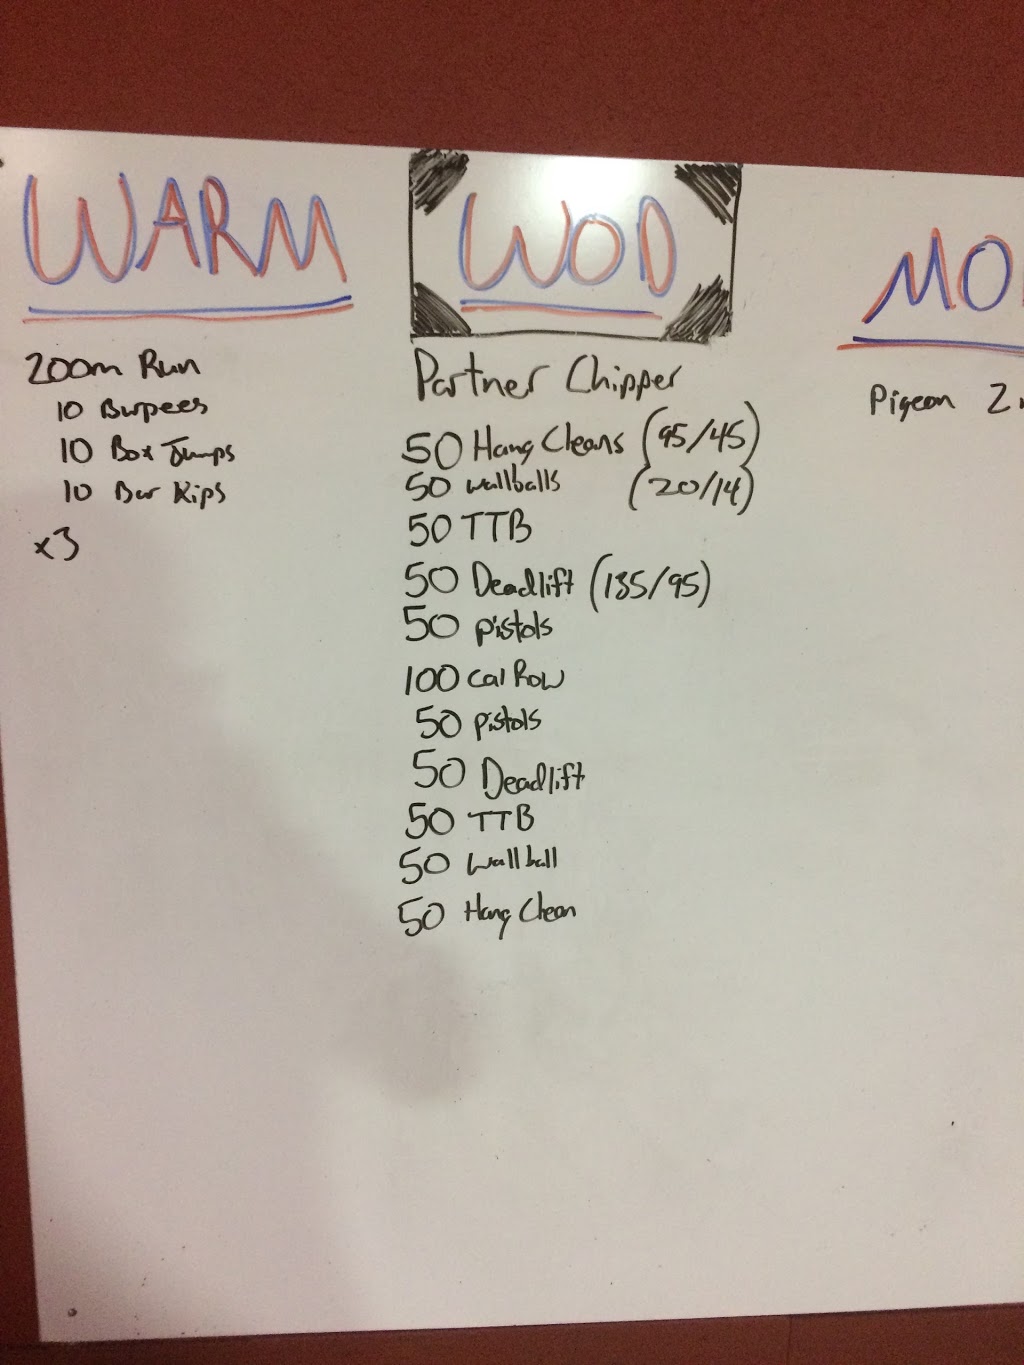 WARM
200m Run
10 Burpees
10 Box Jumps
10 Bar Kips
x3
WOD
Partner Chipper
50 Hang Cleans (95/45)
50 wallballs (20/14)
50 TTB
50 Deadlift (135/95)
50 pistols
100 Cal Row
50 pistols
50 Deadlift
50 TTB
50 wallball
50 Hang Clean
MO
Pigeon 2